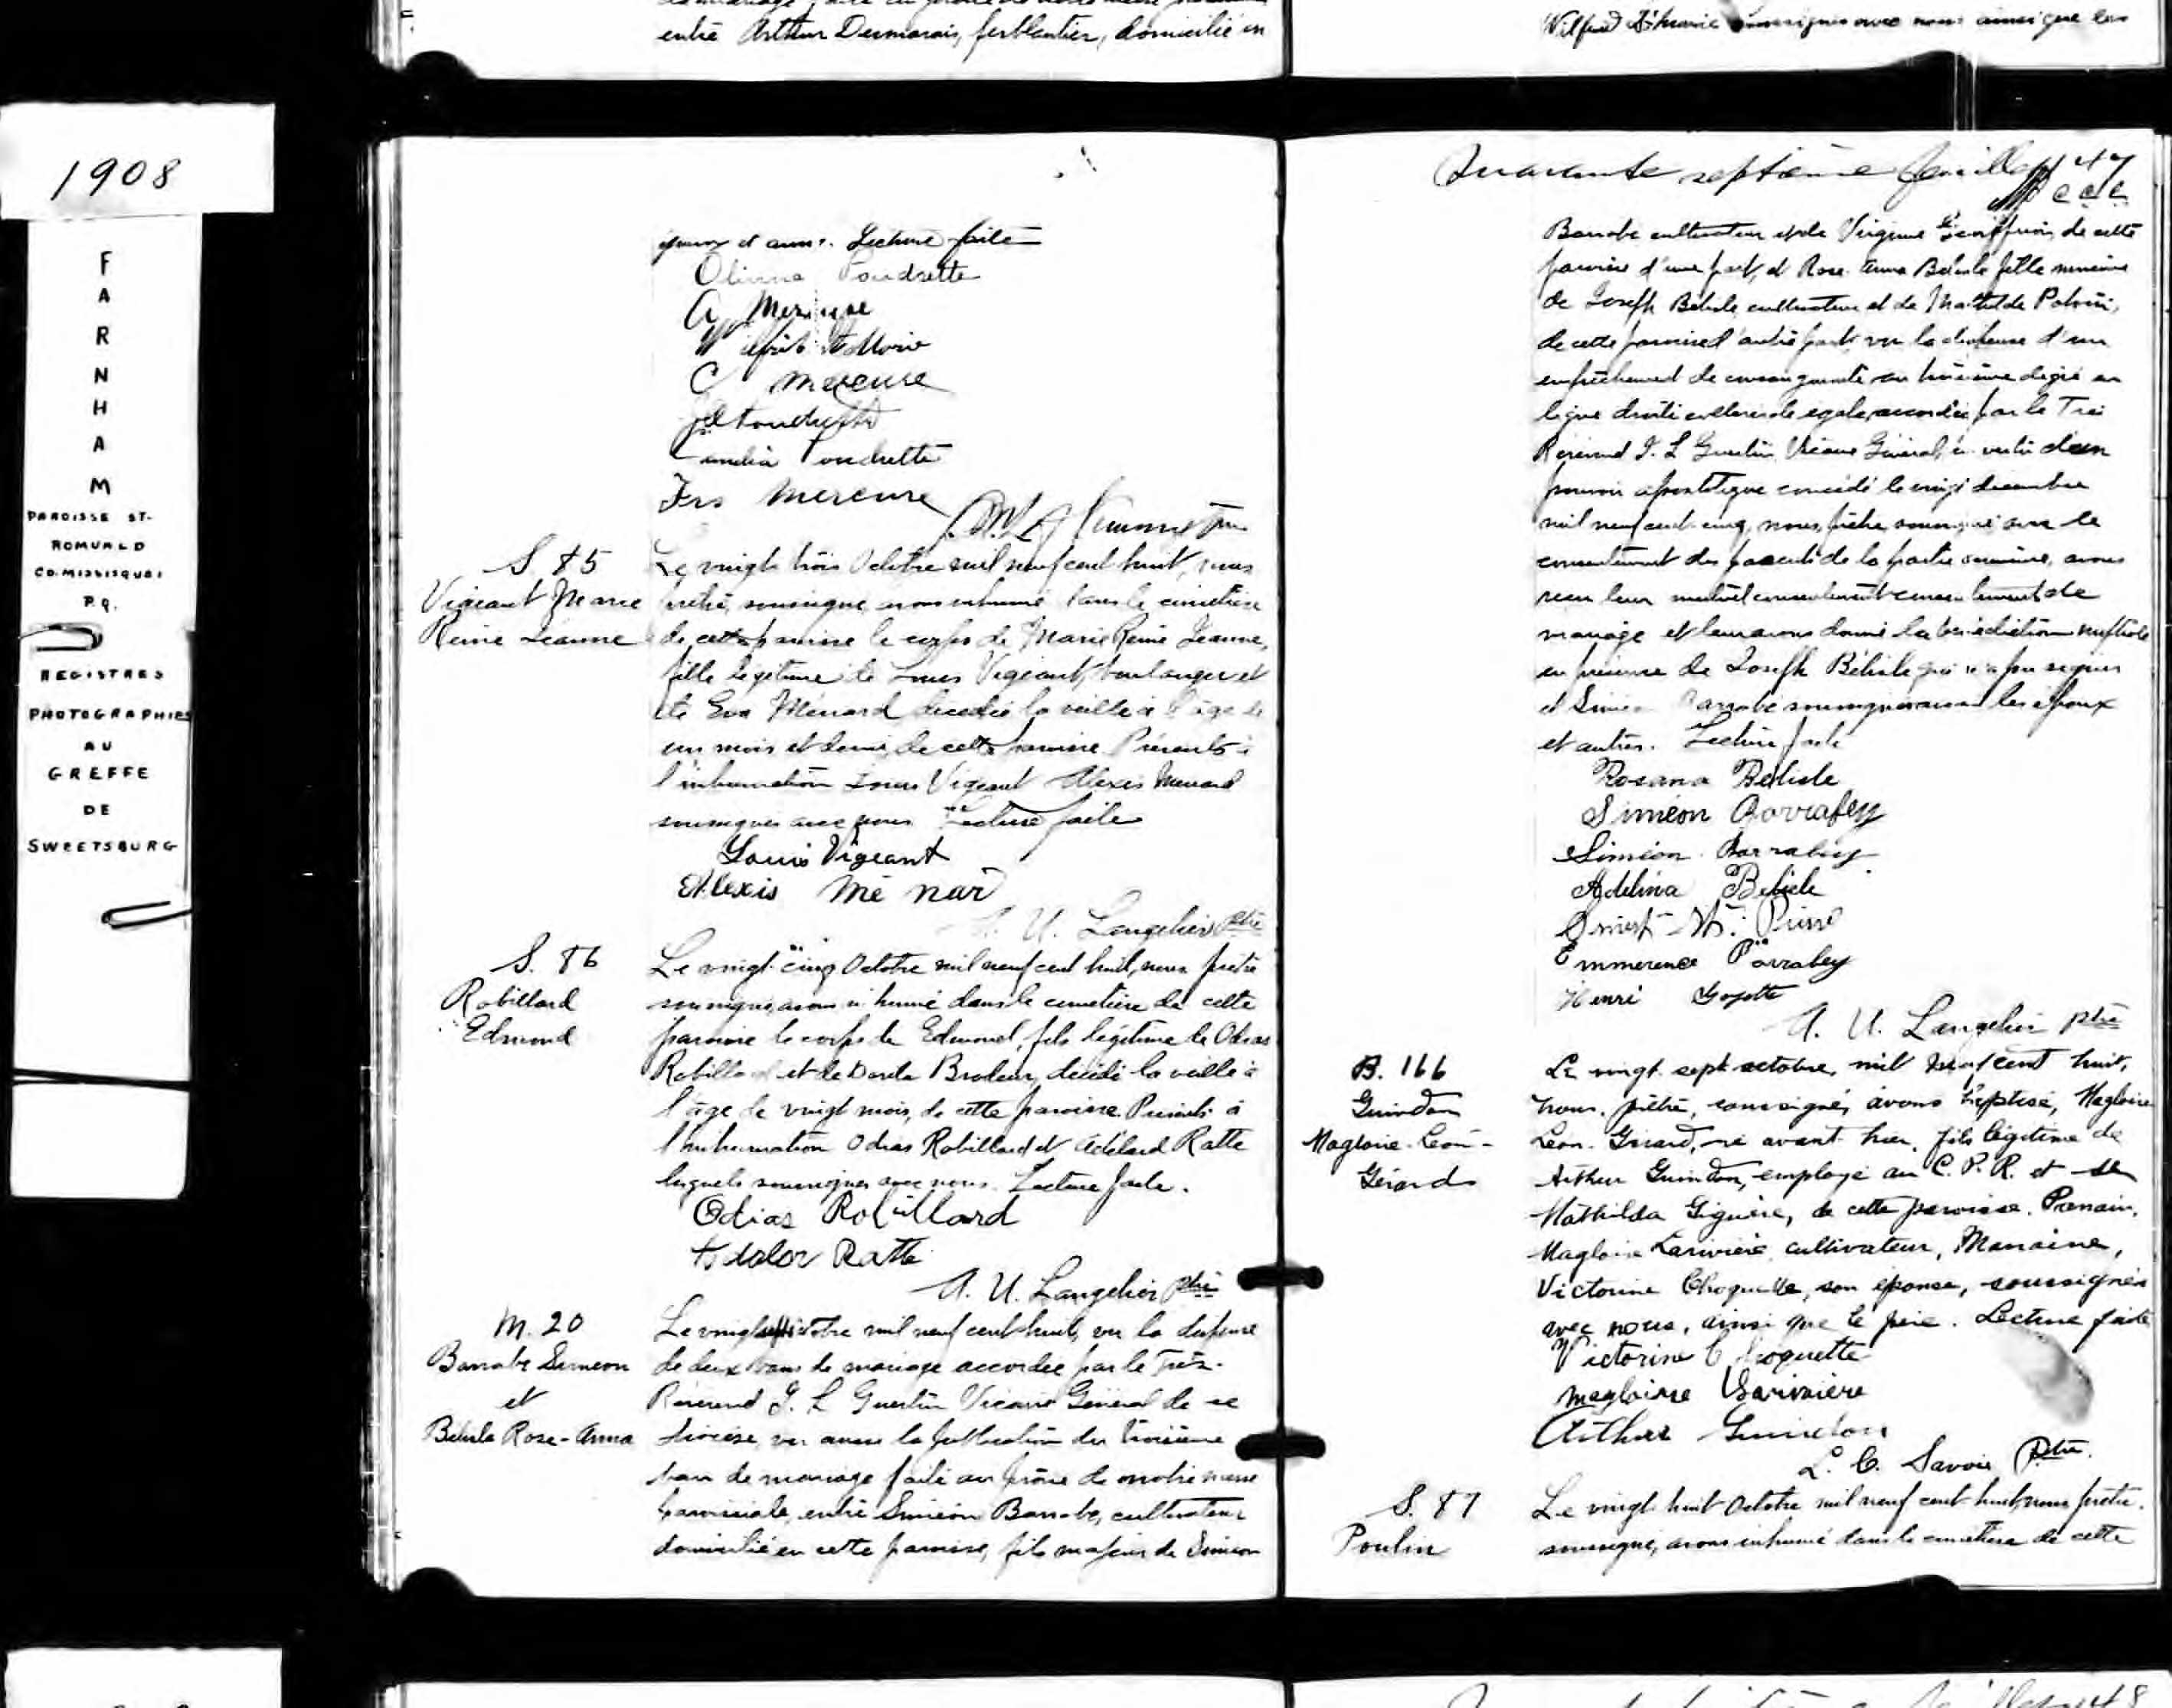 entre Arthur Desmarais, ferblantier, domicilié en
Wilfrid St Marie soussignés avec nous ainsi que les
1908
FARNHAM
PAROISSE ST-
ROMUALD
CO. MISSISQUOI
P.Q.
REGISTRES
PHOTOGRAPHIES
AU
GREFFE
DE
SWEETSBURG
époux et amis. Lecture faite
Poudrette
A Mercure
Wilfrid St Marie
C Mercure
Poudrette
Frs Mercure
S. 85
Vigeant Marie
Reine Jeanne
Le vingt trois Octobre mil neuf cent huit, nous
prêtre soussigné avons inhumé dans le cimetière
de cette paroisse le corps de Marie Reine Jeanne,
fille légitime de Louis Vigeant, boulanger et
de Eva Ménard décédée la veille à l'âge de
un mois et demi, de cette paroisse. Présents à
l'inhumation Louis Vigeant Alexis Menard
soussignés avec nous. Lecture faite
Louis Vigeant
Alexis Mé nar
A. U. Langelier ptre
S. 86
Robillard
Edmond
Le vingt cinq Octobre mil neuf cent huit, nous prêtre
soussigné, avons inhumé dans le cimetière de cette
paroisse le corps de Edmond, fils légitime de Odias
Robillard et de Brodeur, décédé la veille à
l'âge de vingt mois, de cette paroisse. Présents à
l'inhumation Odias Robillard et Adélard Ratte
lesquels soussignés avec nous. Lecture faite.
Odias Robillard
Ratte
A. U. Langelier ptre
M. 20
Barrabé Simeon
et
Bélisle Rose-Anna
Le vingt octobre mil neuf cent huit, vu la dispense
de deux bans de mariage accordée par le Très-
Révérend J. L Guertin Vicaire Général de ce
diocèse, vu aussi la publication du troisième
ban de mariage faite au prône de notre messe
paroissiale, entre Siméon Barrabé, cultivateur
domicilié en cette paroisse, fils majeur de Siméon
Quarante septième feuillet 47
Barrabé cultivateur et de Virginie de cette
paroisse d'une part, et Rose Anna Bélisle fille mineure
de Joseph Bélisle cultivateur et de Mathilde Potvin,
de cette paroisse d'autre part, vu la dispense d'un
empêchement de consanguinité au troisième degré en
ligne droite collatérale égale accordée par le Très
Révérend J. L Guertin Vicaire Général, en vertu d'un
pouvoir apostolique concédé le vingt décembre
mil neuf cent cinq, nous, prêtre soussigné avec le
consentement des parents de la partie mineure, avons
reçu leur mutuel consentement de
mariage et leur avons donné la bénédiction nuptiale
en présence de Joseph Bélisle qui n'a pu signer
et Siméon Barrabé soussigné avec les époux
et autres. Lecture faite
Rosana Belisle
Siméon Barrabey
Siméon Barrabey
Adelina Belisle
Ernest St. Pierre
Emmerence Barrabey
Henri Goyette
A. U. Langelier ptre
B. 166
Guindon
Magloire-Léon-
Gérard
Le vingt sept octobre, mil neuf cent huit,
nous, prêtre, soussigné, avons baptisé, Magloire
Léon Gérard, né avant hier, fils légitime de
Arthur Guindon, employé au C.P.R. et de
Mathilda Giguère, de cette paroisse. Parrain,
Magloire Larivière cultivateur, Marraine,
Victorine Choquette, son épouse, soussignés
avec nous, ainsi que le père. Lecture faite
Victorine Choquette
Magloire Larivière
Arthur Guindon
L. C. Savoie Ptre.
S. 87
Poulin
Le vingt huit Octobre mil neuf cent huit, nous prêtre
soussigné, avons inhumé dans le cimetière de cette